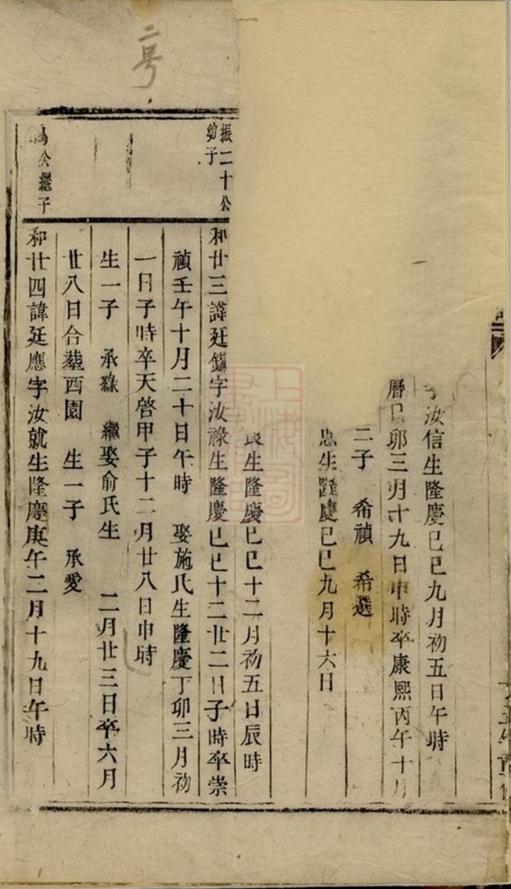 字汝信生隆慶己巳九月初五日午時
曆己卯三月十九日申時卒康熙丙午十月
二子 希禎 希選
忠生隆慶己巳九月十六日
良生隆慶己巳十二月初五日辰時
振二十公
幼子
和廿三諱廷鎮字汝祿生隆慶己巳十二廿二日子時卒崇
禎壬午十月二十日午時 娶施氏生隆慶丁卯三月初
一日子時卒天啓甲子十二月廿八日申時
生一子 承祿 繼娶俞氏生 二月廿三日卒六月
廿八日合塟西園 生一子 承愛
公繼子
和廿四諱廷應字汝就生隆慶庚午二月十九日午時